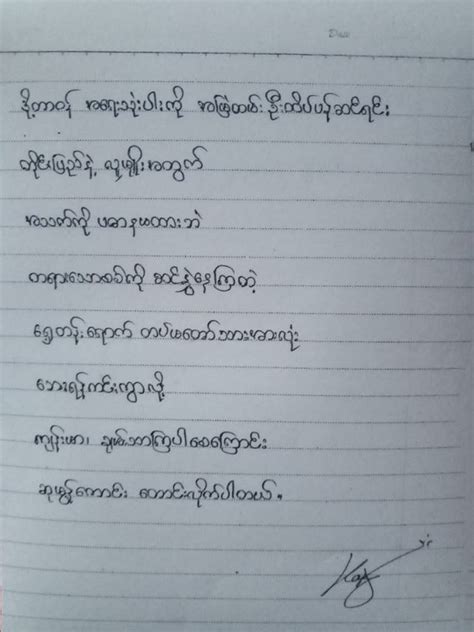 Date
ဒို့တာဝန် အရေးသုံးပါးကို အမြဲတမ်း ဦးထိပ်ပန်ဆင်ရင်း
တိုင်းပြည်နဲ့ လူမျိုးအတွက်
အသက်ကို ပဓာနမထားဘဲ
တရားသောစစ်ကို ဆင်နွှဲနေကြတဲ့
ရှေ့တန်းရောက် တပ်မတော်သားအားလုံး
ဘေးရန်ကင်းကွာလို့
ကျန်းမာ၊ ချမ်းသာကြပါစေကြောင်း
ဆုမွန်ကောင်း တောင်းလိုက်ပါတယ်။